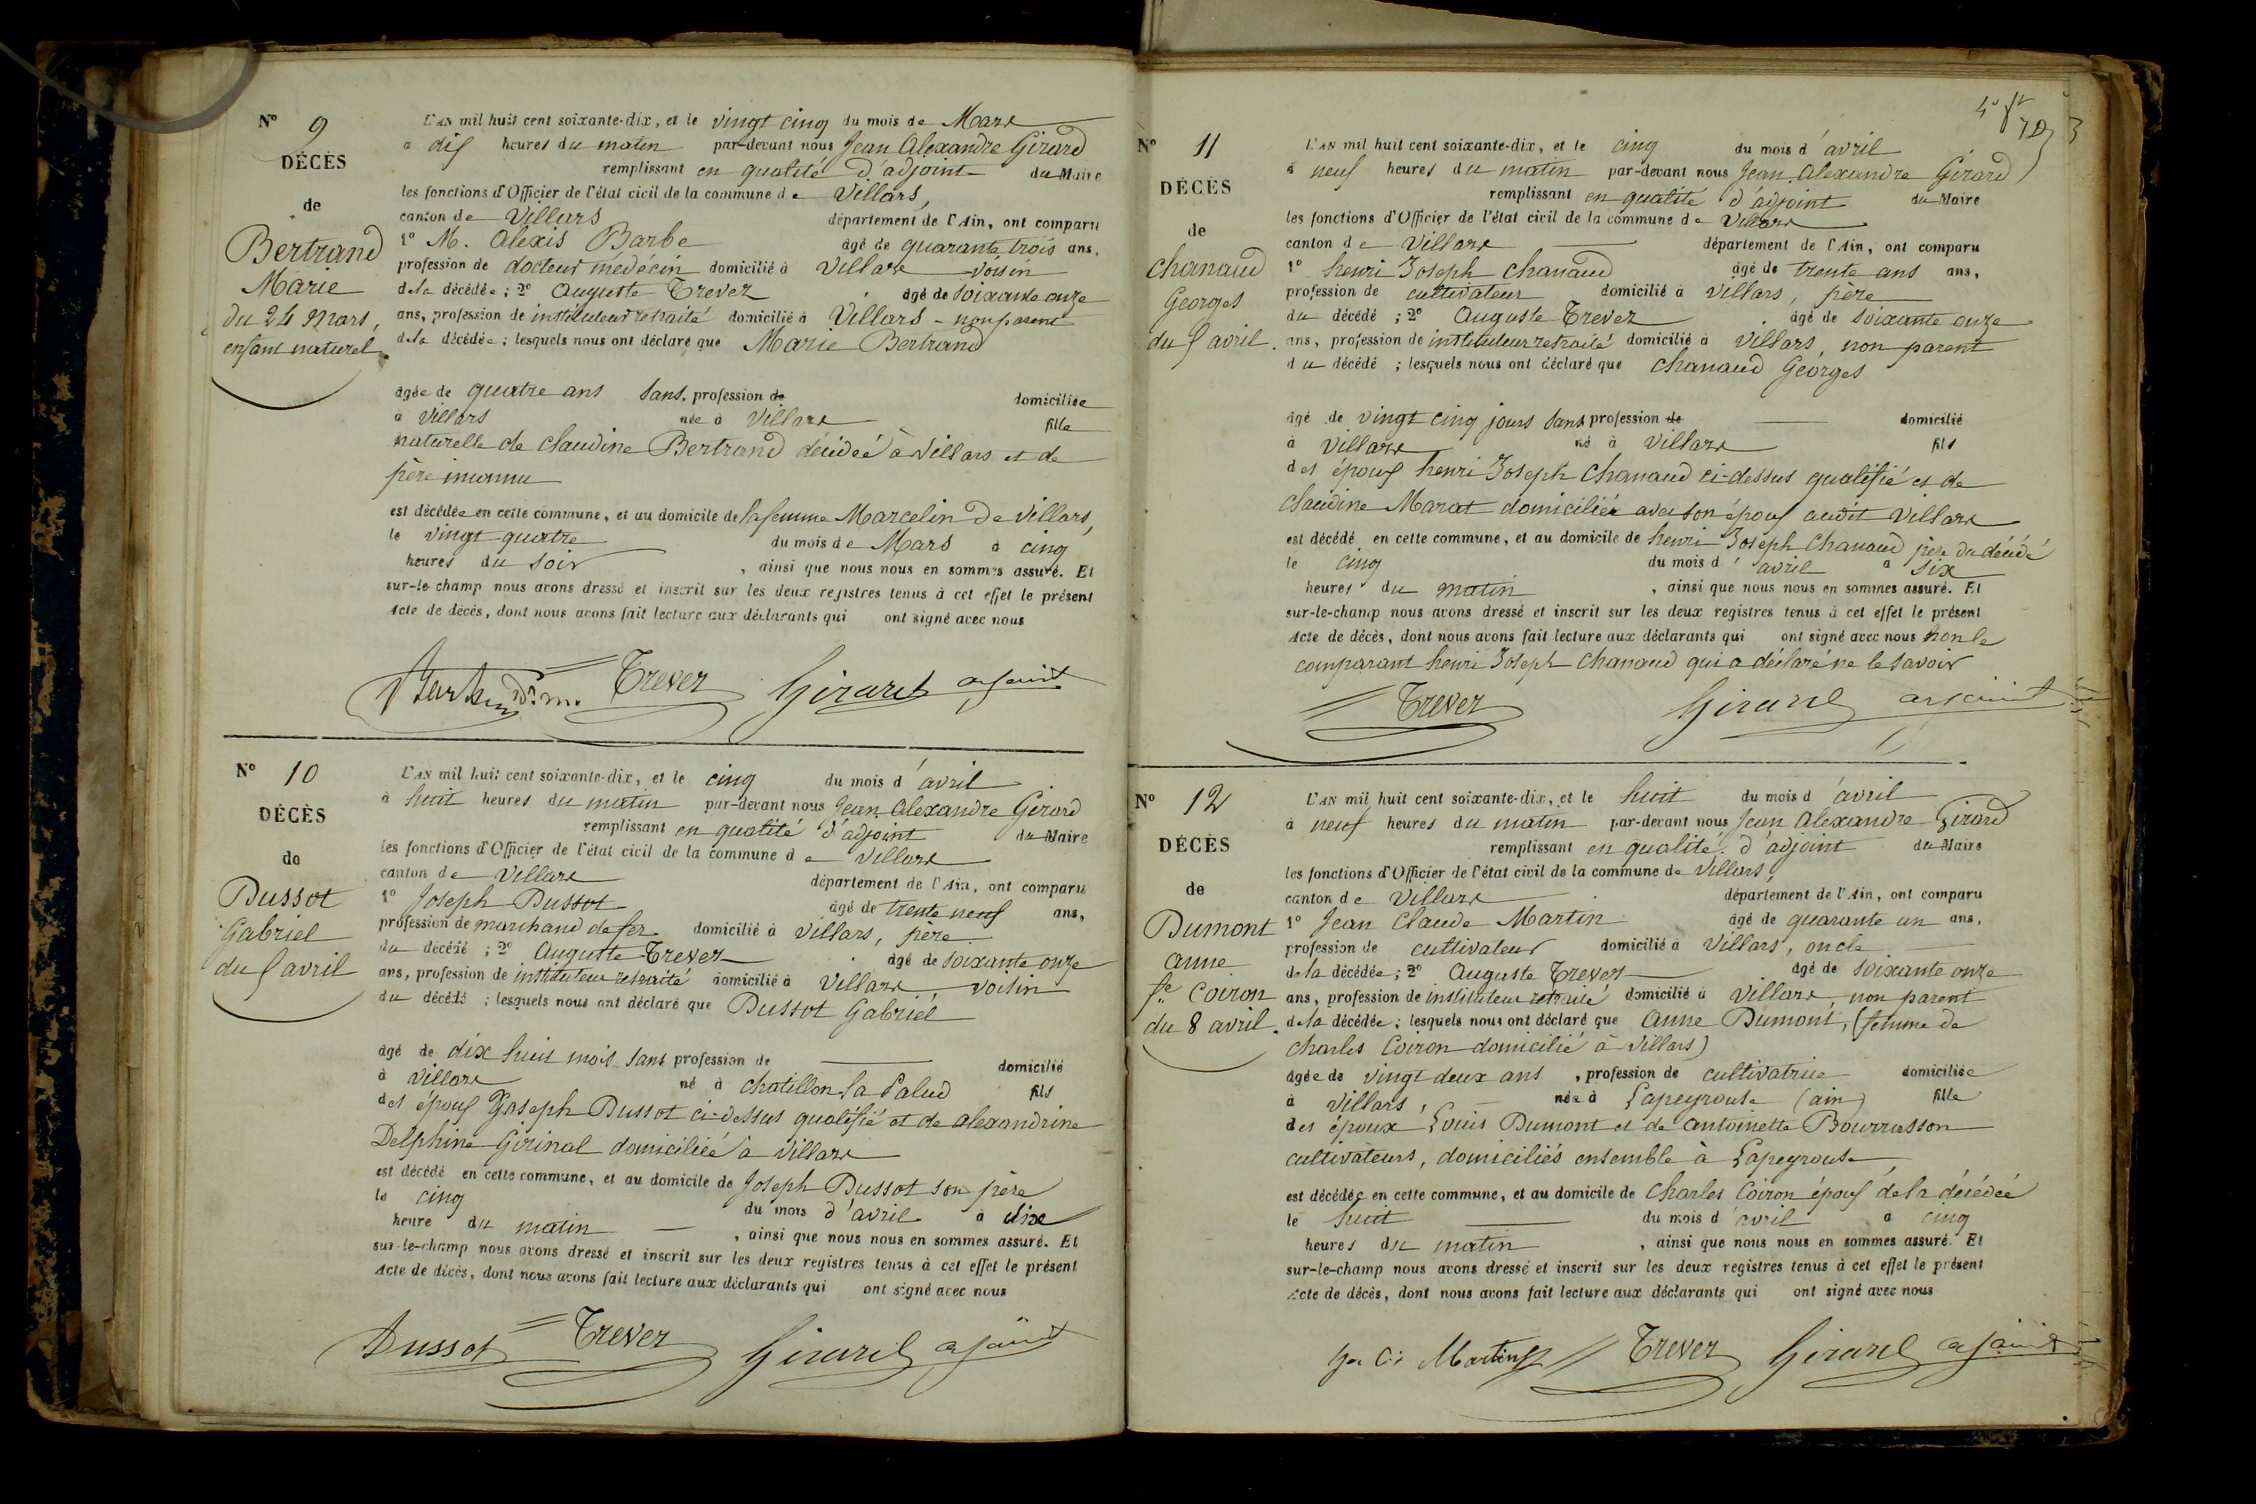 Nº 9
DÉCÈS
de
Bertrand
Marie
du 24 Mars,
enfant naturel.
L'AN mil huit cent soixante-dix, et le vingt cinq du mois de Mars
à dix heures du matin par-devant nous Jean Alexandre Girard
remplissant en qualité d'adjoint du Maire
les fonctions d'Officier de l'état civil de la commune de Villars,
canton de Villars département de l'Ain, ont comparu
1º M. Alexis Barbe âgé de quarante trois ans,
profession de docteur médecin domicilié à Villars voisin
de la décédée ; 2º Auguste Trever âgé de soixante onze
ans, profession de instituteur retraité domicilié à Villars - non parent
de la décédée ; lesquels nous ont déclaré que Marie Bertrand
âgée de quatre ans sans profession de domiciliée
à Villars née à Villars fille
naturelle de Claudine Bertrand décédée à Villars et de
père inconnu
est décédée en cette commune, et au domicile de la femme Marcelin de Villars,
le vingt quatre du mois de Mars à cinq
heures du soir , ainsi que nous nous en sommes assuré. Et
sur-le champ nous avons dressé et inscrit sur les deux registres tenus à cet effet le présent
Acte de décès, dont nous avons fait lecture aux déclarants qui ont signé avec nous
Barbe d.m. Trever Girard adjoint
Nº 10
DÉCÈS
de
Dussot
Gabriel
du 5 avril
L'AN mil huit cent soixante-dix, et le cinq du mois d'avril
à huit heures du matin par-devant nous Jean Alexandre Girard
remplissant en qualité d'adjoint du Maire
les fonctions d'Officier de l'état civil de la commune de Villars
canton de Villars département de l'Ain, ont comparu
1º Joseph Dussot âgé de trente neuf ans,
profession de marchand de fer domicilié à Villars, père
du décédé ; 2º Auguste Trever âgé de soixante onze
ans, profession de instituteur retraité domicilié à Villars voisin
du décédé ; lesquels nous ont déclaré que Dussot Gabriel
âgé de dix huit mois sans profession de domicilié
à Villars né à Chatillon la Palud fils
des époux Joseph Dussot ci-dessus qualifié et de Alexandrine
Delphine Girinal domiciliée à Villars
est décédé en cette commune, et au domicile de Joseph Dussot son père
le cinq du mois d'avril à dix
heure du matin , ainsi que nous nous en sommes assuré. Et
sur-le-champ nous avons dressé et inscrit sur les deux registres tenus à cet effet le présent
Acte de décès, dont nous avons fait lecture aux déclarants qui ont signé avec nous
Dussot Trever Girard adjoint
Nº 11
DÉCÈS
de
Chanaud
Georges
du 5 avril.
L'AN mil huit cent soixante-dix, et le cinq du mois d'avril
à neuf heures du matin par-devant nous Jean Alexandre Girard
remplissant en qualité d'adjoint du Maire
les fonctions d'Officier de l'état civil de la commune de Villars
canton de Villars département de l'Ain, ont comparu
1º henri Joseph Chanaud âgé de trente ans ans,
profession de cultivateur domicilié à Villars, père
du décédé ; 2º Auguste Trever âgé de soixante onze
ans, profession de instituteur retraité domicilié à Villars, non parent
du décédé ; lesquels nous ont déclaré que Chanaud Georges
âgé de vingt cinq jours sans profession de domicilié
à Villars né à Villars fils
des époux henri Joseph Chanaud ci-dessus qualifié et de
Claudine Marat domiciliée avec son époux audit Villars
est décédé en cette commune, et au domicile de henri Joseph Chanaud père du décédé
le cinq du mois d'avril à six
heures du matin , ainsi que nous nous en sommes assuré. Et
sur-le-champ nous avons dressé et inscrit sur les deux registres tenus à cet effet le présent
Acte de décès, dont nous avons fait lecture aux déclarants qui ont signé avec nous non le
comparant henri Joseph Chanaud qui a déclaré ne le savoir
Trever Girard adjoint
Nº 12
DÉCÈS
de
Dumont
Anne
fe Coiron
du 8 avril.
L'AN mil huit cent soixante-dix, et le huit du mois d'avril
à neuf heures du matin par-devant nous Jean Alexandre Girard
remplissant en qualité d'adjoint du Maire
les fonctions d'Officier de l'état civil de la commune de Villars,
canton de Villars département de l'Ain, ont comparu
1º Jean Claude Martin âgé de quarante un ans,
profession de cultivateur domicilié à Villars, oncle
de la décédée ; 2º Auguste Trever âgé de soixante onze
ans, profession de instituteur retraité domicilié à Villars, non parent
de la décédée ; lesquels nous ont déclaré que Anne Dumont, (femme de
Charles Coiron domicilié à Villars)
âgée de vingt deux ans , profession de cultivatrice domiciliée
à Villars, née à Lapeyrouse (ain) fille
des époux Louis Dumont et de Antoinette Bourrasson
cultivateurs, domiciliés ensemble à Lapeyrouse,
est décédée en cette commune, et au domicile de Charles Coiron époux de la décédée
le huit du mois d'avril à cinq
heures du matin , ainsi que nous nous en sommes assuré. Et
sur-le-champ nous avons dressé et inscrit sur les deux registres tenus à cet effet le présent
Acte de décès, dont nous avons fait lecture aux déclarants qui ont signé avec nous
Martin Trever Girard adjoint